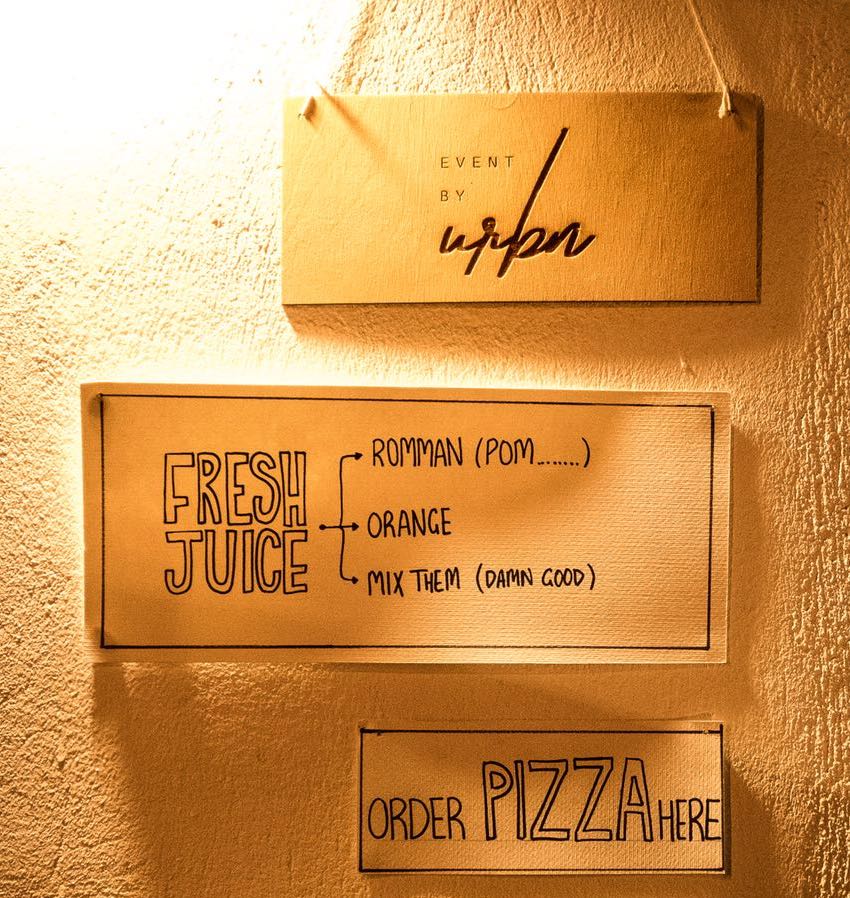 EVENT
BY
urbn
FRESH
JUICE
ROMMAN (POM.......)
ORANGE
MIX THEM (DAMN GOOD)
ORDER PIZZA HERE